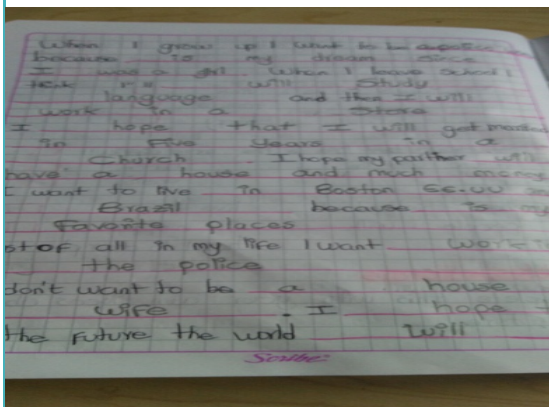 When I grow up I want to be a police
because is my dream since
I was a girl. When I leave school I
will study
language and then I will
work in a store
I hope that I will get married
in five years in a
Church. I hope my partner will
have a house and much money
I want to live in Boston EE.UU
Brazil because is my
favorite places
of all in my life I want work
the police
don't want to be a house
wife. I hope
the future the world will
Scribe